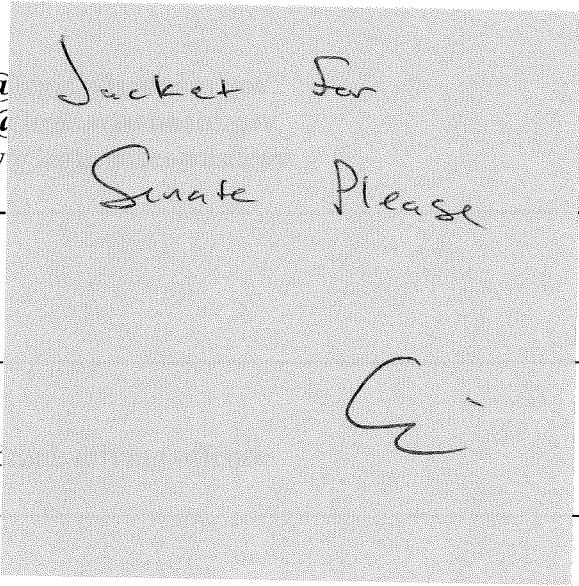 Jacket For
Senate Please